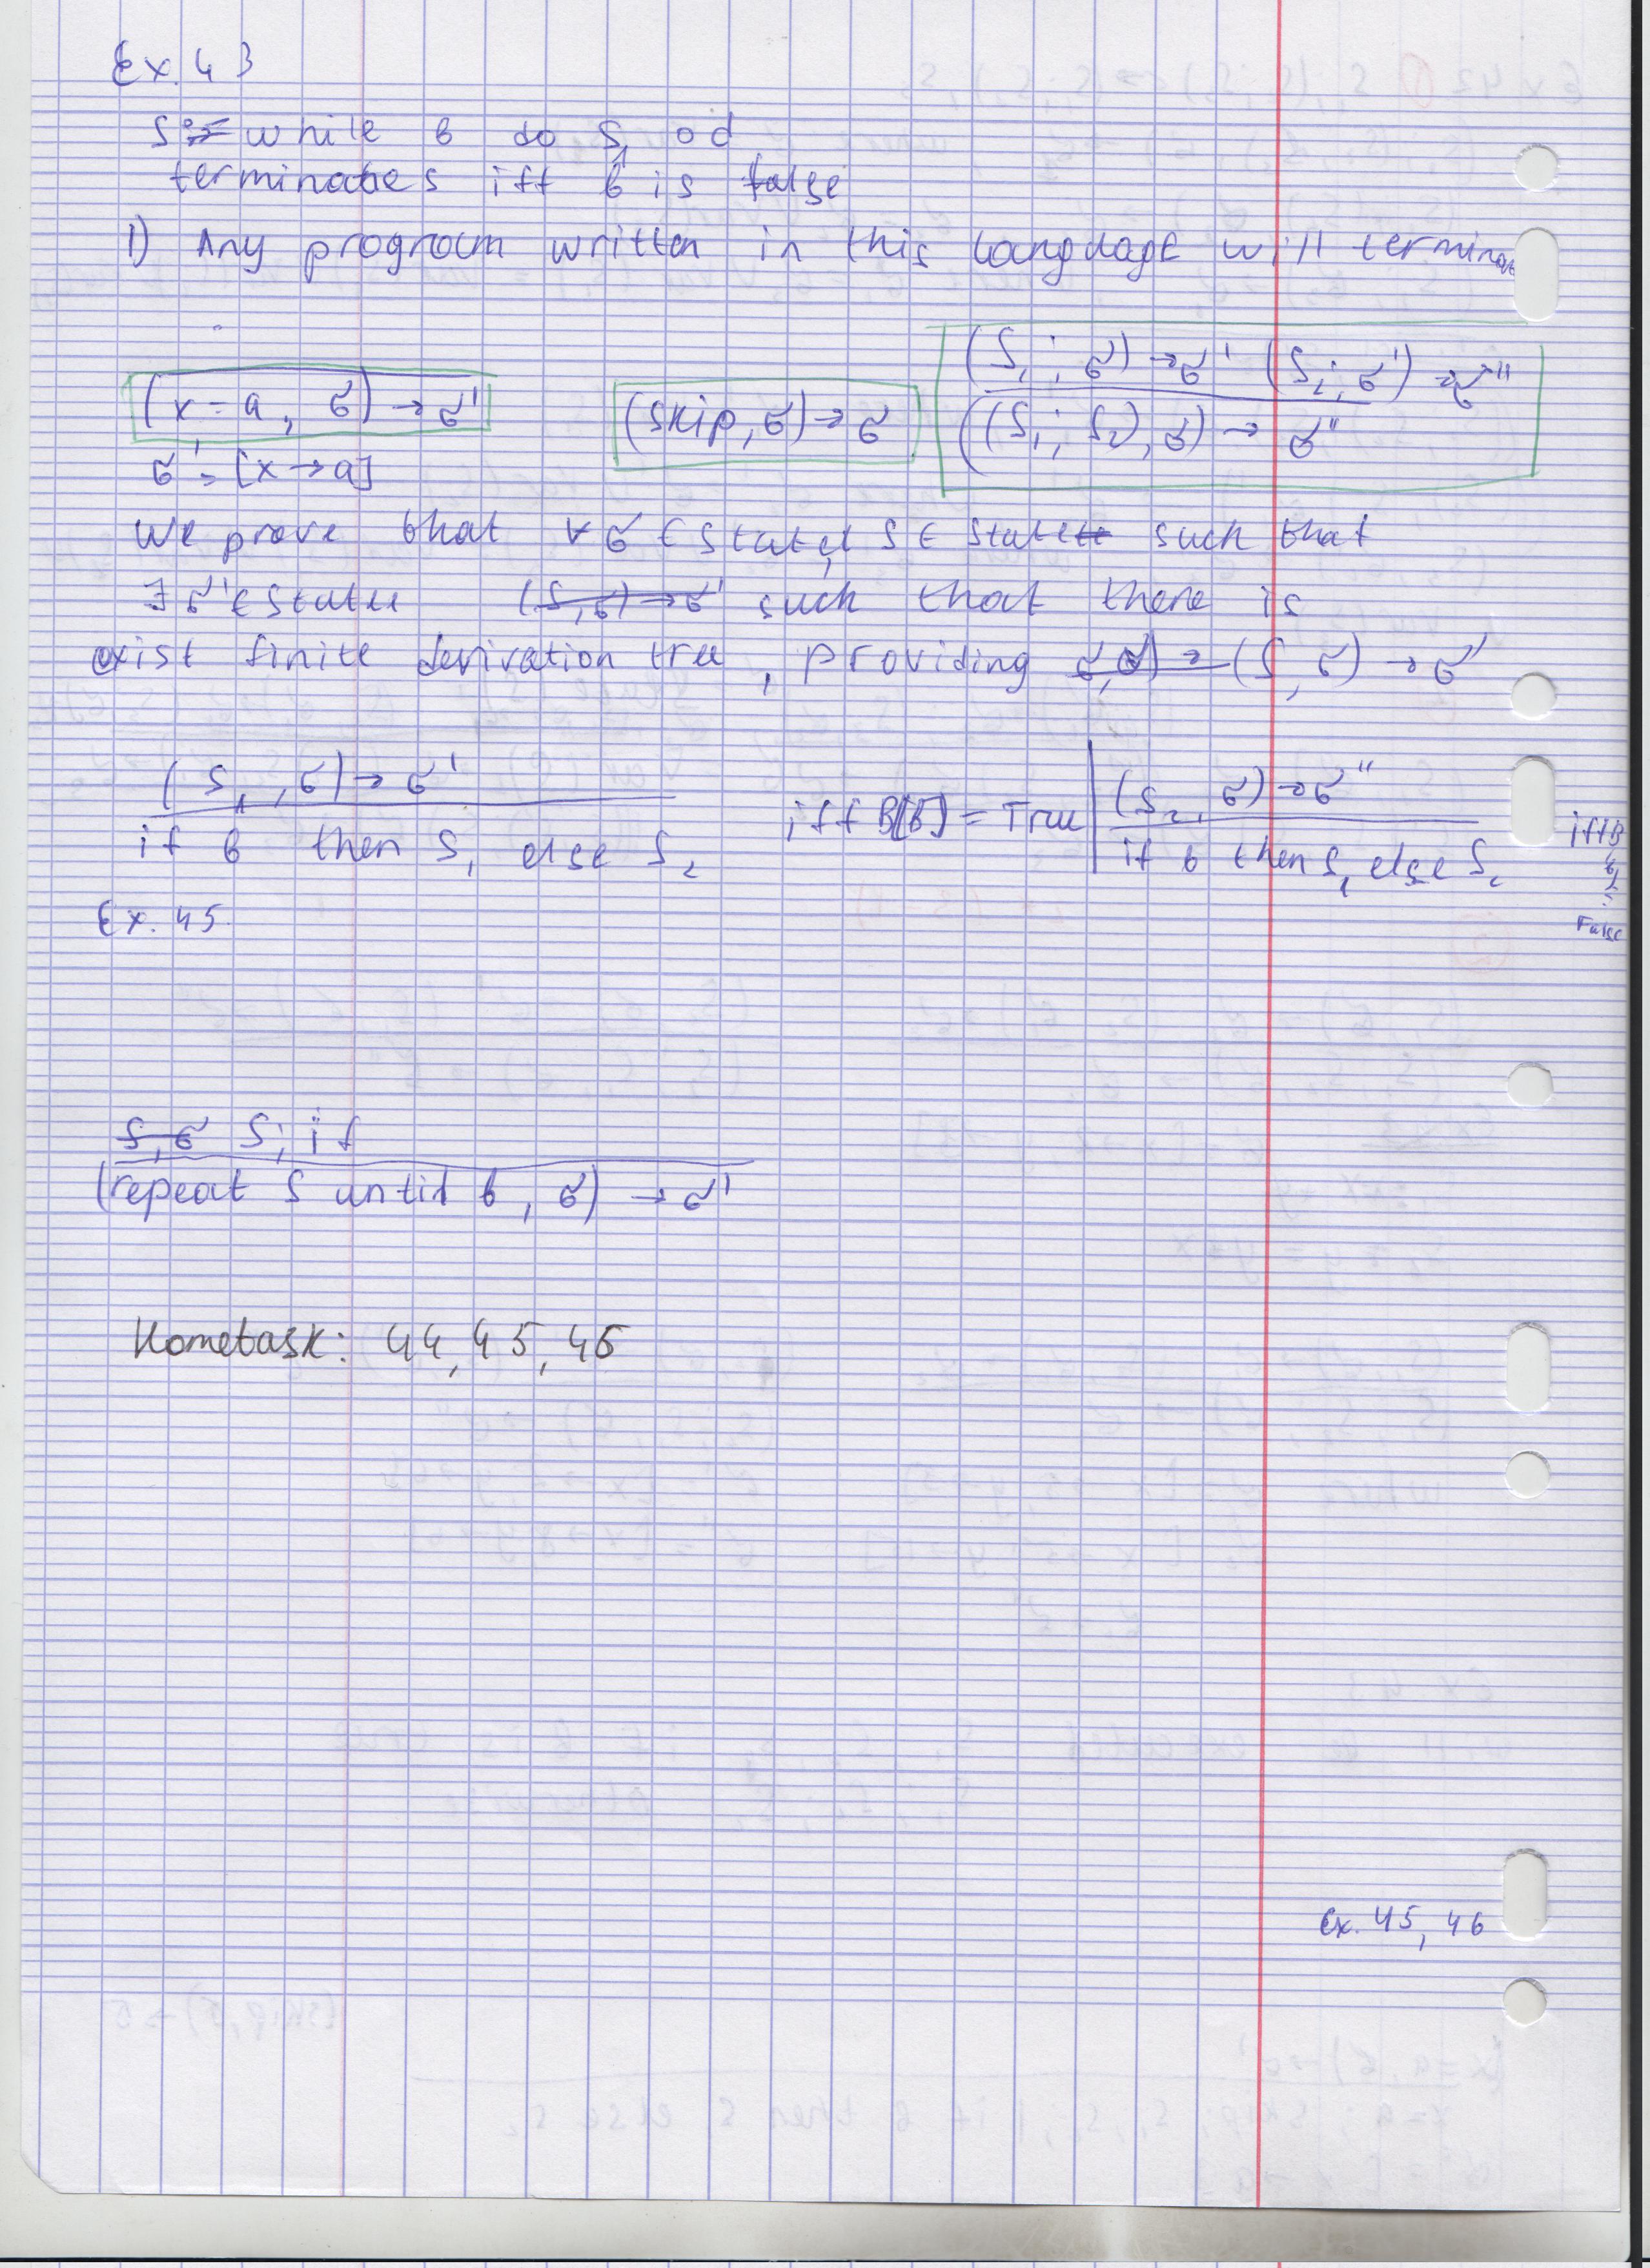 Ex. 43
S ::= while b do S₁ od
terminates iff b is false
1) Any program written in this language will terminat
(S₁; σ) → σ' (S₁; σ') → σ''
(x = a, σ) → σ'
(skip, σ) → σ
((S₁; S₂), σ) → σ''
σ' = [x → a]
We prove that ∀ σ ∈ State, S ∈ State such that
∃ σ' ∈ State (S, σ) → σ' such that there is
exist finite derivation tree, providing (S, σ) → σ'
(S₁, σ) → σ'
if b then S₁ else S₂
iff B[b] = True
(S₂, σ) → σ''
if b then S₁ else S₂
iff B
False
Ex. 45
S, σ S; if
(repeat S until b, σ) → σ'
Hometask: 44, 45, 46
Ex. 45, 46